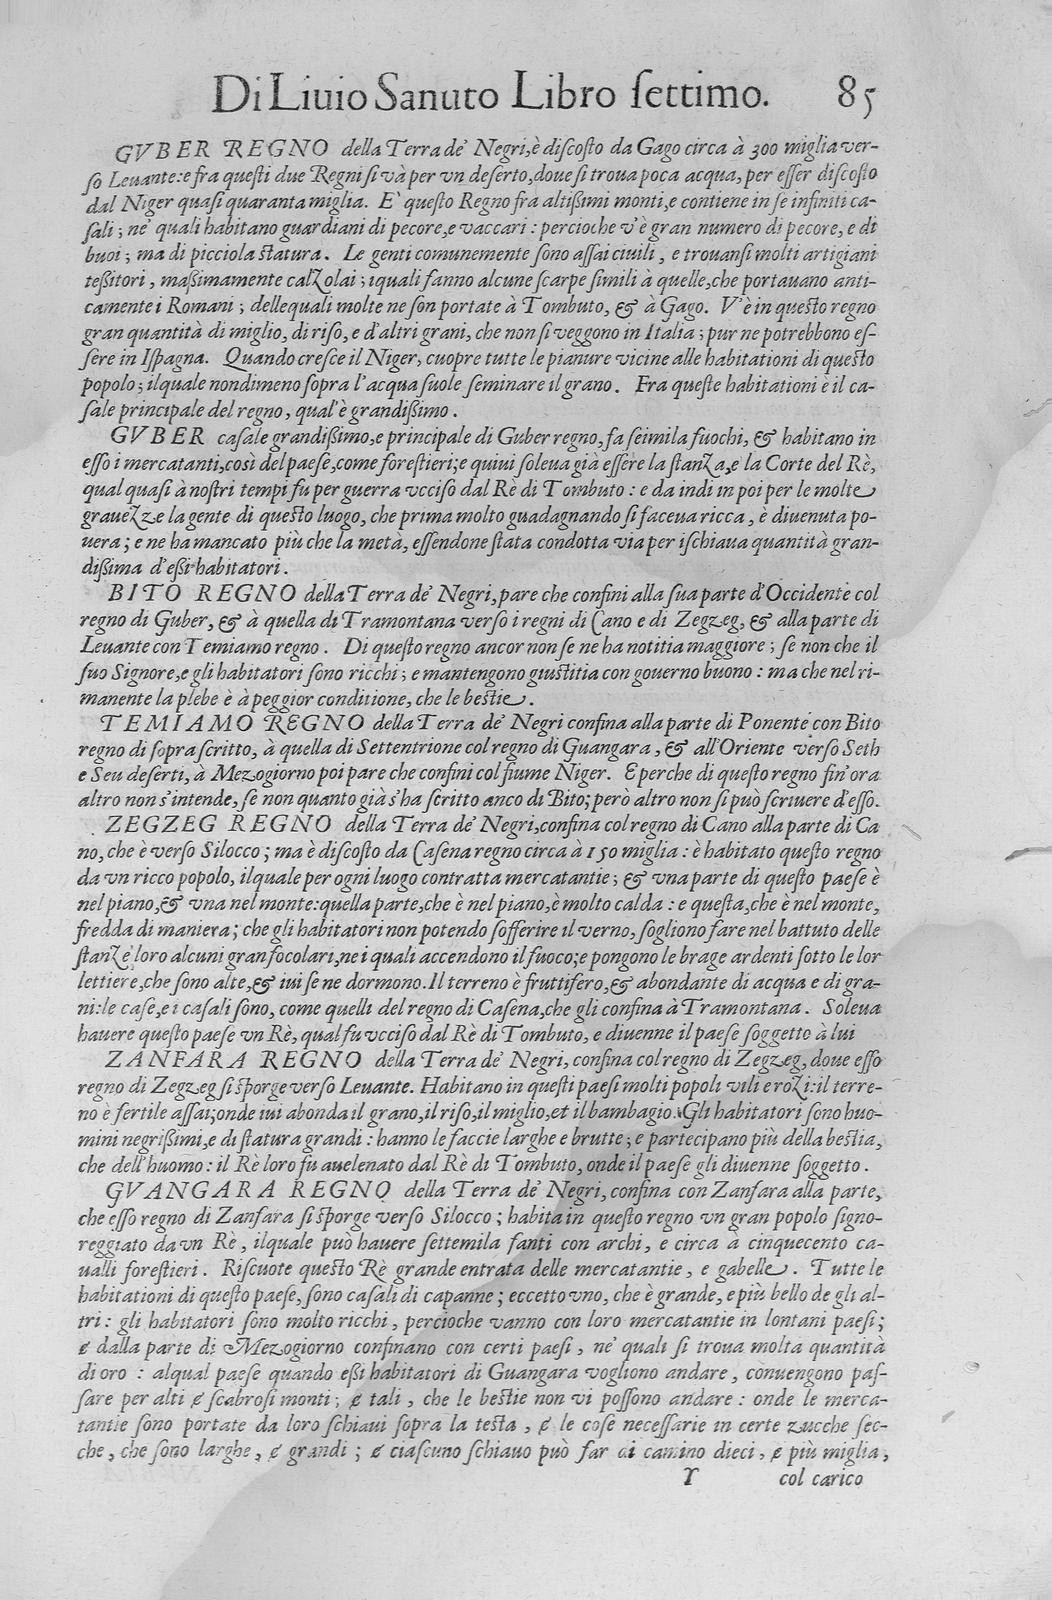 Di Liuio Sanuto Libro settimo. 85
GVBER REGNO della Terra de' Negri, è discosto da Gago circa à 300 miglia ver-
so Leuante: e fra questi due Regni si và per vn deserto, doue si troua poca acqua, per esser discosto
dal Niger quasi quaranta miglia. E' questo Regno fra altissimi monti, e contiene in se infiniti ca-
sali; ne' quali habitano guardiani di pecore, e vaccari: percioche v'è gran numero di pecore, e di
buoi; ma di picciola statura. Le genti comunemente sono assai ciuili, e trouansi molti artigiani
tessitori, massimamente calzolai; iquali fanno alcune scarpe simili à quelle, che portauano anti-
camente i Romani; dellequali molte ne son portate à Tombuto, & à Gago. V'è in questo regno
gran quantità di miglio, di riso, e d'altri grani, che non si veggono in Italia; pur ne potrebbono es-
sere in Ispagna. Quando cresce il Niger, cuopre tutte le pianure vicine alle habitationi di questo
popolo; ilquale nondimeno sopra l'acqua suole seminare il grano. Fra queste habitationi è il ca-
sale principale del regno, qual'è grandissimo.
GVBER casale grandissimo, e principale di Guber regno, fa seimila fuochi, & habitano in
esso i mercatanti, così del paese, come forestieri; e quiui soleua già essere la stanza, e la Corte del Rè,
qual quasi à nostri tempi fu per guerra vcciso dal Rè di Tombuto: e da indi in poi per le molte
grauezze la gente di questo luogo, che prima molto guadagnando si faceua ricca, è diuenuta po-
uera; e ne ha mancato più che la metà, essendone stata condotta via per ischiaua quantità gran-
dissima d'essi habitatori.
BITO REGNO della Terra de' Negri, pare che confini alla sua parte d'Occidente col
regno di Guber, & à quella di Tramontana verso i regni di Cano e di Zegzeg, & alla parte di
Leuante con Temiamo regno. Di questo regno ancor non se ne ha notitia maggiore; se non che il
suo Signore, e gli habitatori sono ricchi; e mantengono giustitia con gouerno buono: ma che nel ri-
manente la plebe è à peggior conditione, che le bestie.
TEMIAMO REGNO della Terra de' Negri confina alla parte di Ponente con Bito
regno di sopra scritto, à quella di Settentrione col regno di Guangara, & all'Oriente verso Seth
e Seu deserti, à Mezogiorno poi pare che confini col fiume Niger. E perche di questo regno fin'ora
altro non s'intende, se non quanto già s'ha scritto anco di Bito; però altro non si può scriuere d'esso.
ZEGZEG REGNO della Terra de' Negri, confina col regno di Cano alla parte di Ca
no, che è verso Silocco; ma è discosto da Casena regno circa à 150 miglia: è habitato questo regno
da vn ricco popolo, ilquale per ogni luogo contratta mercatantie; & vna parte di questo paese è
nel piano, & vna nel monte: quella parte, che è nel piano, è molto calda: e questa, che è nel monte,
fredda di maniera; che gli habitatori non potendo sofferire il verno, sogliono fare nel battuto delle
stanze loro alcuni gran focolari, ne i quali accendono il fuoco; e pongono le brage ardenti sotto le lor
lettiere, che sono alte, & iui se ne dormono. Il terreno è fruttifero, & abondante di acqua e di gra-
ni: le case, e i casali sono, come quelli del regno di Casena, che gli confina à Tramontana. Soleua
hauere questo paese vn Rè, qual fu vcciso dal Rè di Tombuto, e diuenne il paese soggetto à lui
ZANFARA REGNO della Terra de' Negri, confina col regno di Zegzeg, doue esso
regno di Zegzeg si sporge verso Leuante. Habitano in questi paesi molti popoli vili e rozi: il terre-
no è fertile assai; onde iui abonda il grano, il riso, il miglio, et il bambagio. Gli habitatori sono huo-
mini negrissimi, e di statura grandi: hanno le faccie larghe e brutte; e partecipano più della bestia,
che dell'huomo: il Rè loro fu auelenato dal Rè di Tombuto, onde il paese gli diuenne soggetto.
GVANGARA REGNO della Terra de' Negri, confina con Zanfara alla parte,
che esso regno di Zanfara si sporge verso Silocco; habita in questo regno vn gran popolo signo-
reggiato da vn Rè, ilquale può hauere settemila fanti con archi, e circa à cinquecento ca-
ualli forestieri. Riscuote questo Rè grande entrata delle mercatantie, e gabelle. Tutte le
habitationi di questo paese, sono casali di capanne; eccetto vno, che è grande, e più bello de gli al-
tri: gli habitatori sono molto ricchi, percioche vanno con loro mercatantie in lontani paesi;
& dalla parte di Mezogiorno confinano con certi paesi, ne' quali si troua molta quantità
di oro: alqual paese quando essi habitatori di Guangara vogliono andare, conuengono pas-
sare per alti & scabrosi monti; & tali, che le bestie non vi possono andare: onde le merca-
tantie sono portate da loro schiaui sopra la testa, & le cose necessarie in certe zucche sec-
che, che sono larghe, & grandi; & ciascuno schiauo può far di camino dieci, & più miglia,
Y col carico